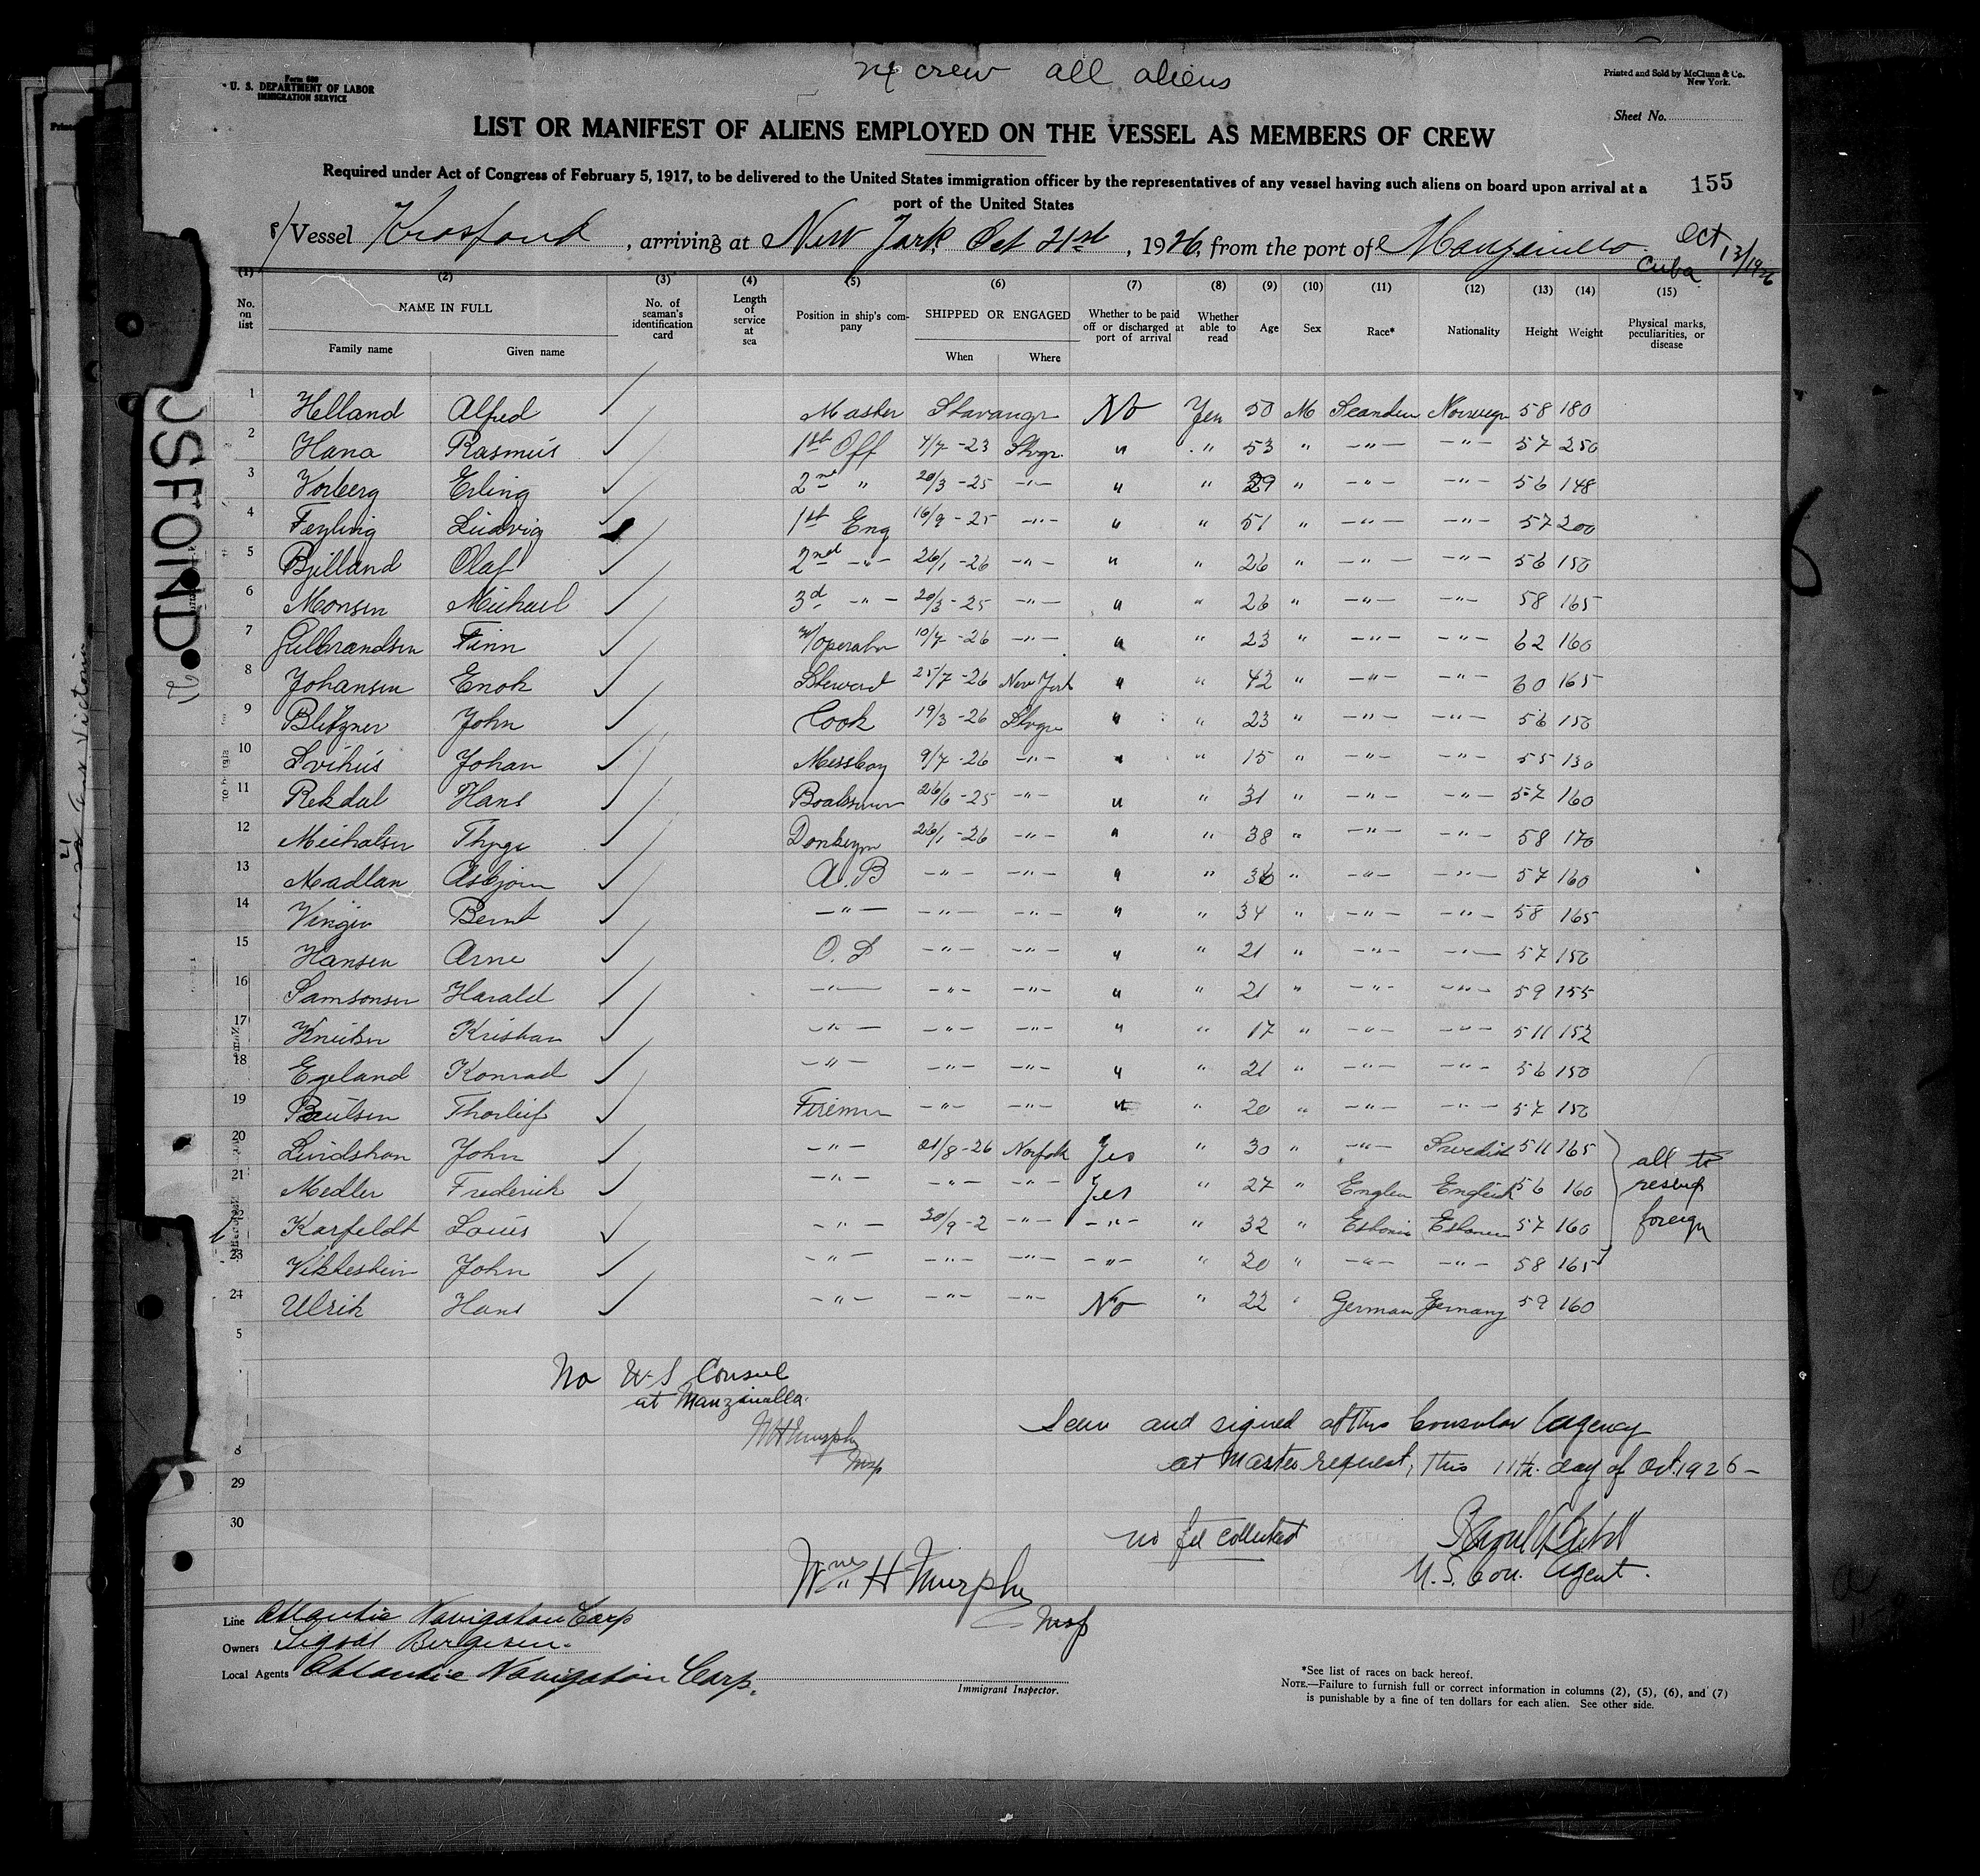 24 crew all aliens
Form 680
U. S. DEPARTMENT OF LABOR
IMMIGRATION SERVICE
Printed and Sold by McClunn & Co.
New York.
Sheet No.
LIST OR MANIFEST OF ALIENS EMPLOYED ON THE VESSEL AS MEMBERS OF CREW
Required under Act of Congress of February 5, 1917, to be delivered to the United States immigration officer by the representatives of any vessel having such aliens on board upon arrival at a
port of the United States
155
Vessel Krosfond, arriving at New York, Oct 21st, 1926, from the port of Manzanillo Cuba Oct 13/1926
(1) (2) (3) (4) (5) (6) (7) (8) (9) (10) (11) (12) (13) (14) (15)
No. on list NAME IN FULL Family name Given name No. of seaman's identification card Length of service at sea Position in ship's company SHIPPED OR ENGAGED When Where Whether to be paid off or discharged at port of arrival Whether able to read Age Sex Race* Nationality Height Weight Physical marks, peculiarities, or disease
1 Helland Alfred Master Stavangr No Yes 50 M Scandin Norwegn 5 8 180
2 Hana Rasmus 1st Off 4/7 -23 Stvgr. " " 53 " -"- -"- 5 7 250
3 Vorberg Erling 2nd " 20/3 -25 -"- " " 29 " -"- -"- 5 6 148
4 Føyling Ludvig 1st Eng 16/9 -25 -"- " " 51 " -"- -"- 5 7 200
5 Bjelland Olaf 2nd -"- 26/1 -26 -"- " " 26 " -"- -"- 5 6 150
6 Monsen Michael 3d -"- 20/3 -25 -"- " " 26 " -"- -"- 5 8 165
7 Gulbrandsen Finn W/operator 10/7 -26 -"- " " 23 " -"- -"- 6 2 160
8 Johansen Enok Steward 25/7 -26 New York " " 42 " -"- -"- 6 0 165
9 Blitzner John Cook 19/3 -26 Stvgr " " 23 " -"- -"- 5 6 150
10 Svihus Johan Messboy 9/7 -26 -"- " " 15 " -"- -"- 5 5 130
11 Rekdal Hans Boatswain 26/6 -25 -"- " " 31 " -"- -"- 5 7 160
12 Michalsen Thyge Donkeym 26/1 -26 -"- " " 38 " -"- -"- 5 8 170
13 Madlan Asbjorn A.B -"- -"- " " 36 " -"- -"- 5 7 160
14 Bernt -"- -"- -"- " " 34 " -"- -"- 5 8 165
15 Hansen Arne O.S -"- -"- " " 21 " -"- -"- 5 7 150
16 Samsonsen Harald -"- -"- -"- " " 21 " -"- -"- 5 9 155
17 Knutsen Kristian -"- -"- -"- " " 17 " -"- -"- 5 11 152
18 Egeland Konrad -"- -"- -"- " " 21 " -"- -"- 5 6 150
19 Paulsen Thorleif Firemen -"- -"- " " 20 " -"- -"- 5 7 150
20 Lindshon John -"- 21/8 -26 Norfolk Yes " 30 " -"- Swedish 5 11 165
21 Medler Frederick -"- -"- -"- Yes " 27 " Englen English 5 6 160
Karfeldt Louis -"- 30/9 -2 -"- -"- " 32 " Estonia Estonien 5 7 160
23 John -"- -"- -"- -"- " 20 " -"- -"- 5 8 165
24 Ulrik Hans -"- -"- -"- No " 22 " German Germany 5 9 160
all to
reship
foreign
5
8
29
30
No U.S Consul
at Manzanilla.
WH Murphy
Insp
Seen and signed at this Consular Agency
at Master request, this 11th. day of Oct. 1926 -
no fee collected
U.S. Con. Agent.
Wm H Murphy
Insp
Line Atlantic Navigation Corp
Owners Sigval Bergesen.
Local Agents Atlantic Navigation Corp.
Immigrant Inspector.
*See list of races on back hereof.
NOTE.—Failure to furnish full or correct information in columns (2), (5), (6), and (7)
is punishable by a fine of ten dollars for each alien. See other side.
OSFOND